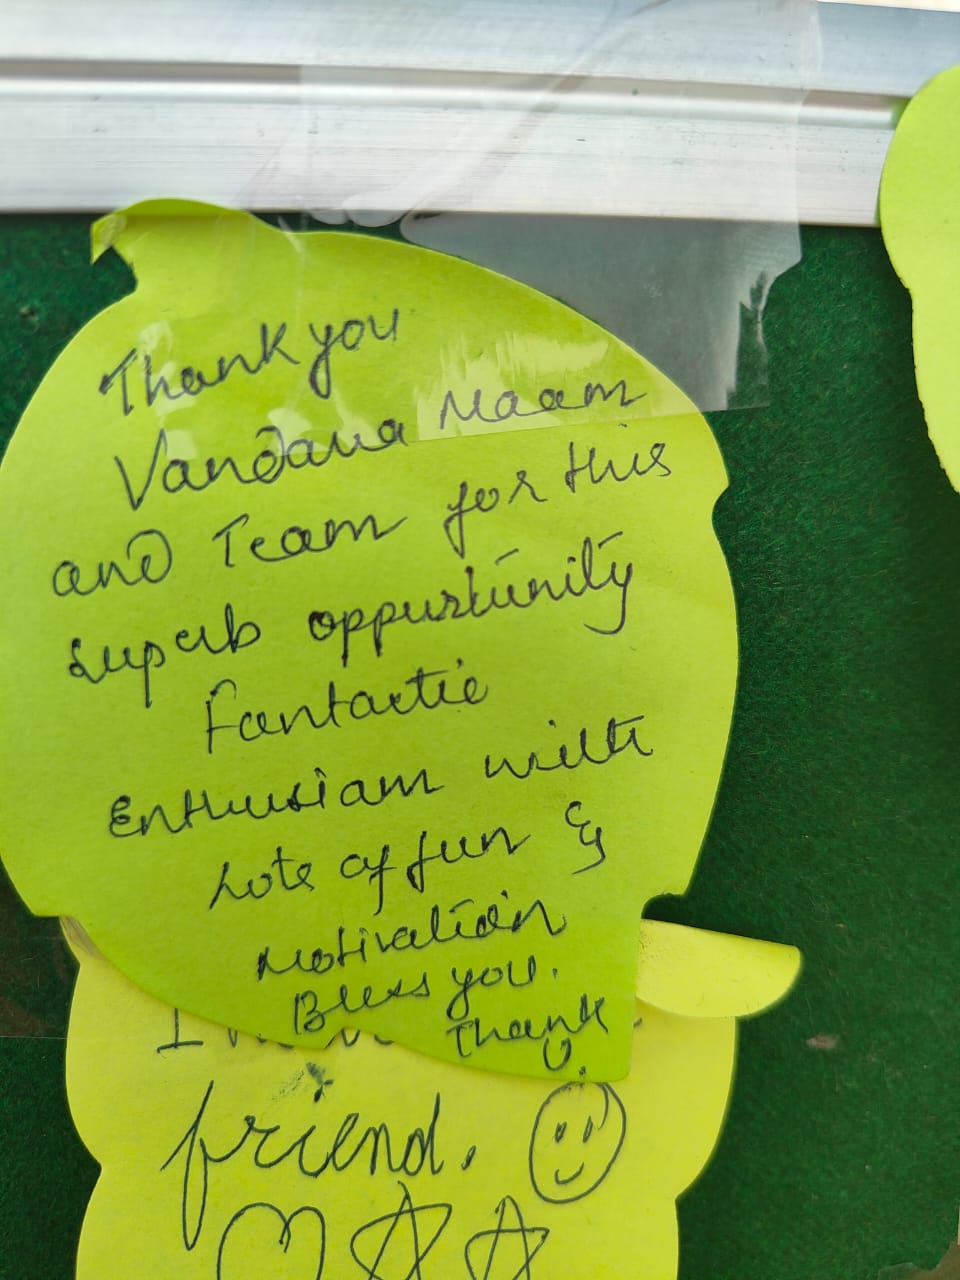 Thank you
Vandana Maam
and Team for this
superb oppurtunity
Fantastic
Enthusiam with
Lots of fun &
Motivation
Bless you.
Thank
U.
I
friend.